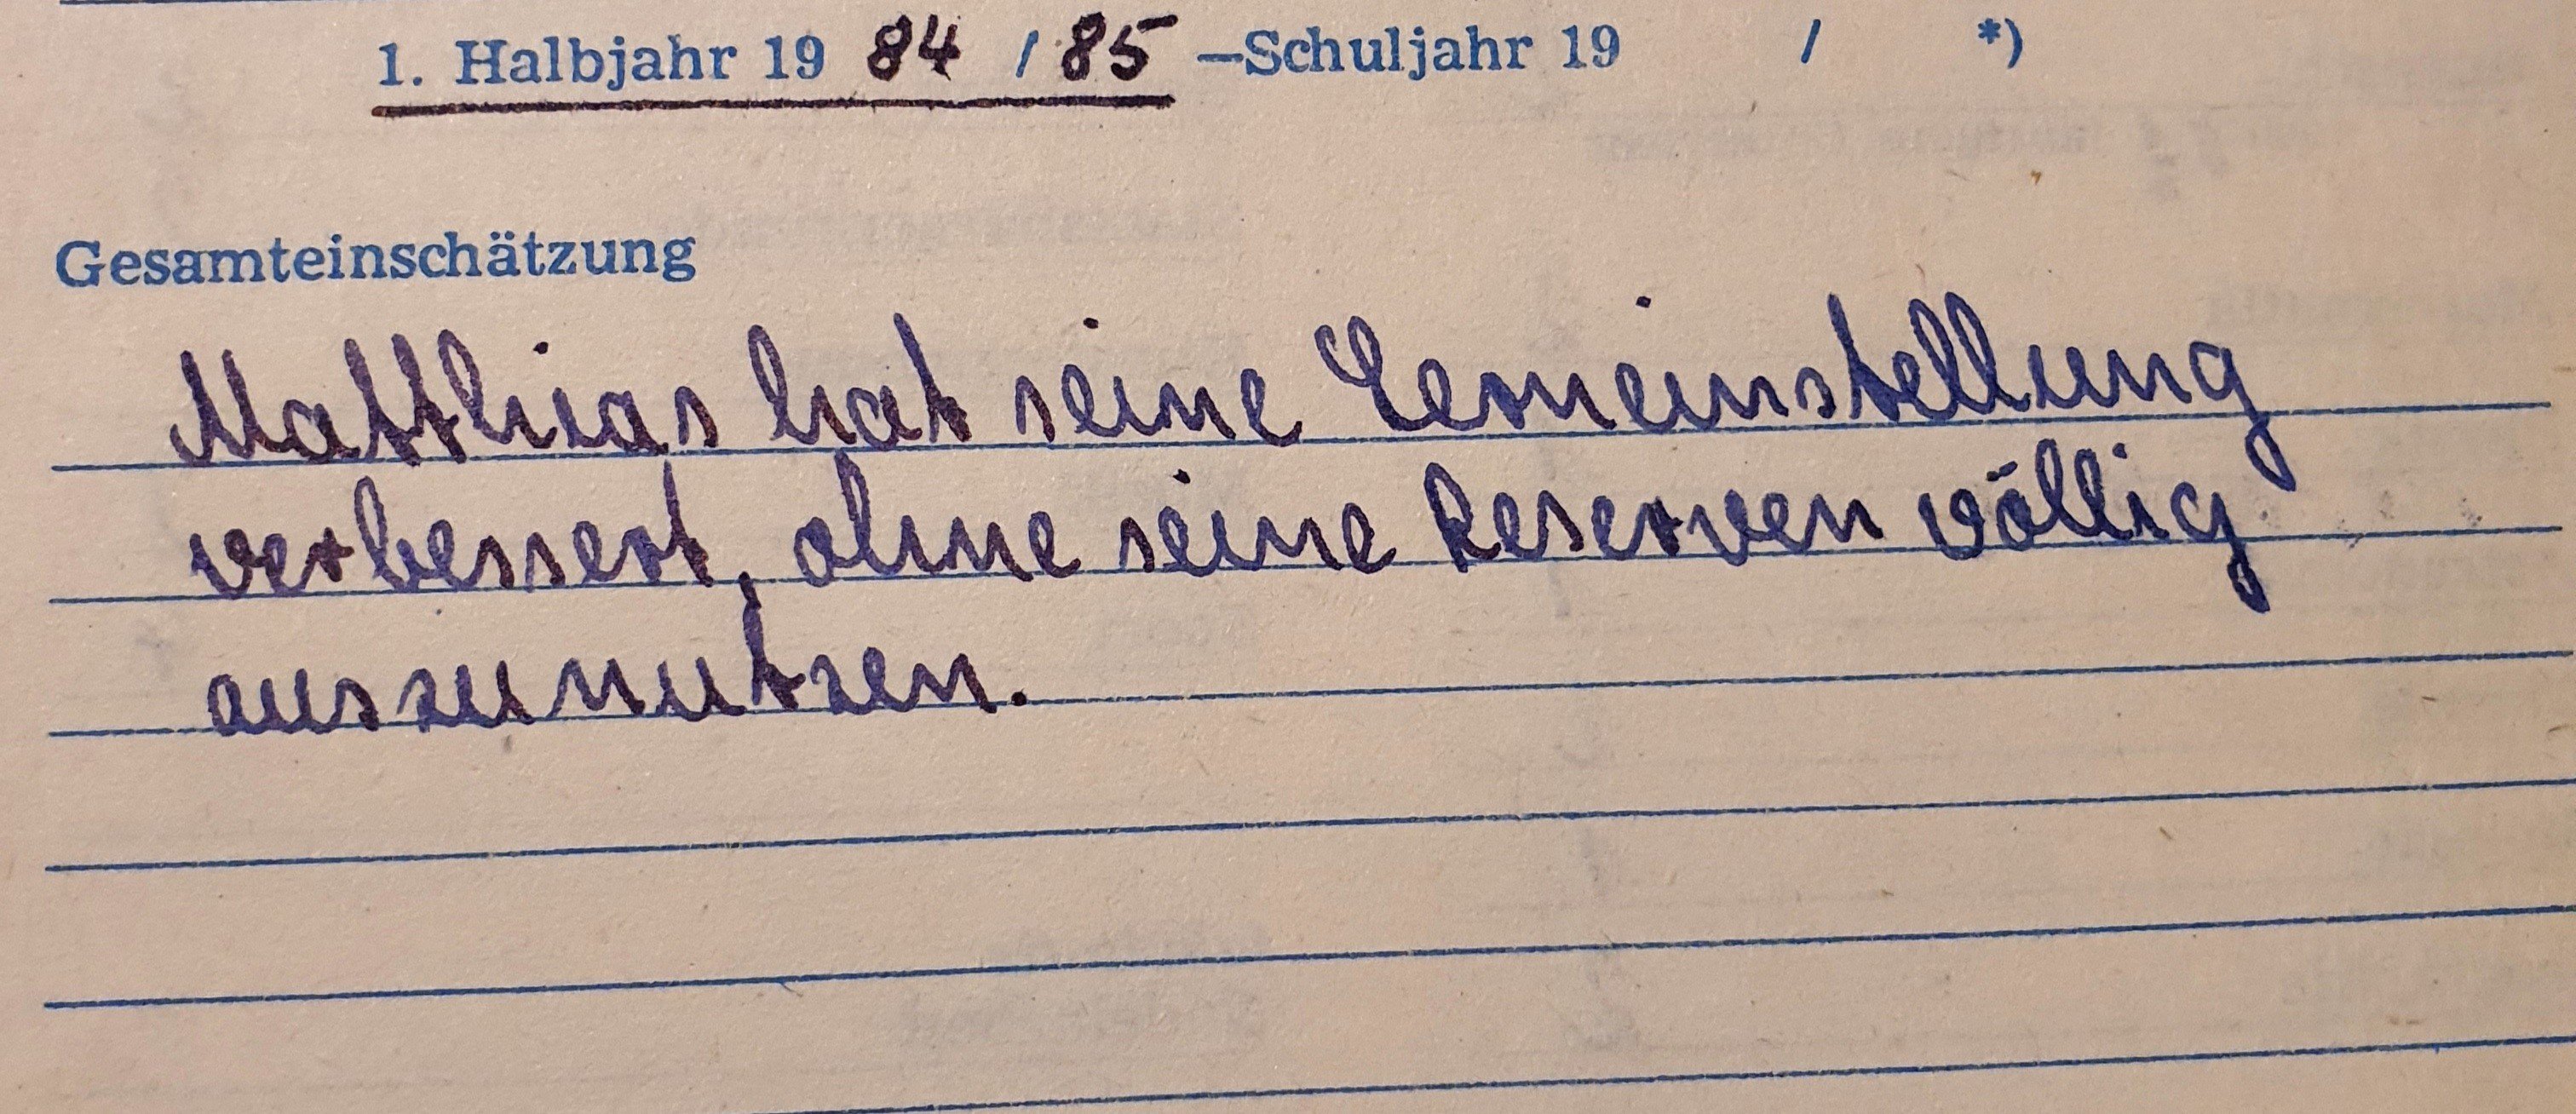 1. Halbjahr 19 84 / 85 –Schuljahr 19 / *)
Gesamteinschätzung
Matthias hat seine Lerneinstellung
verbessert, ohne seine Reserven völlig
auszunutzen.